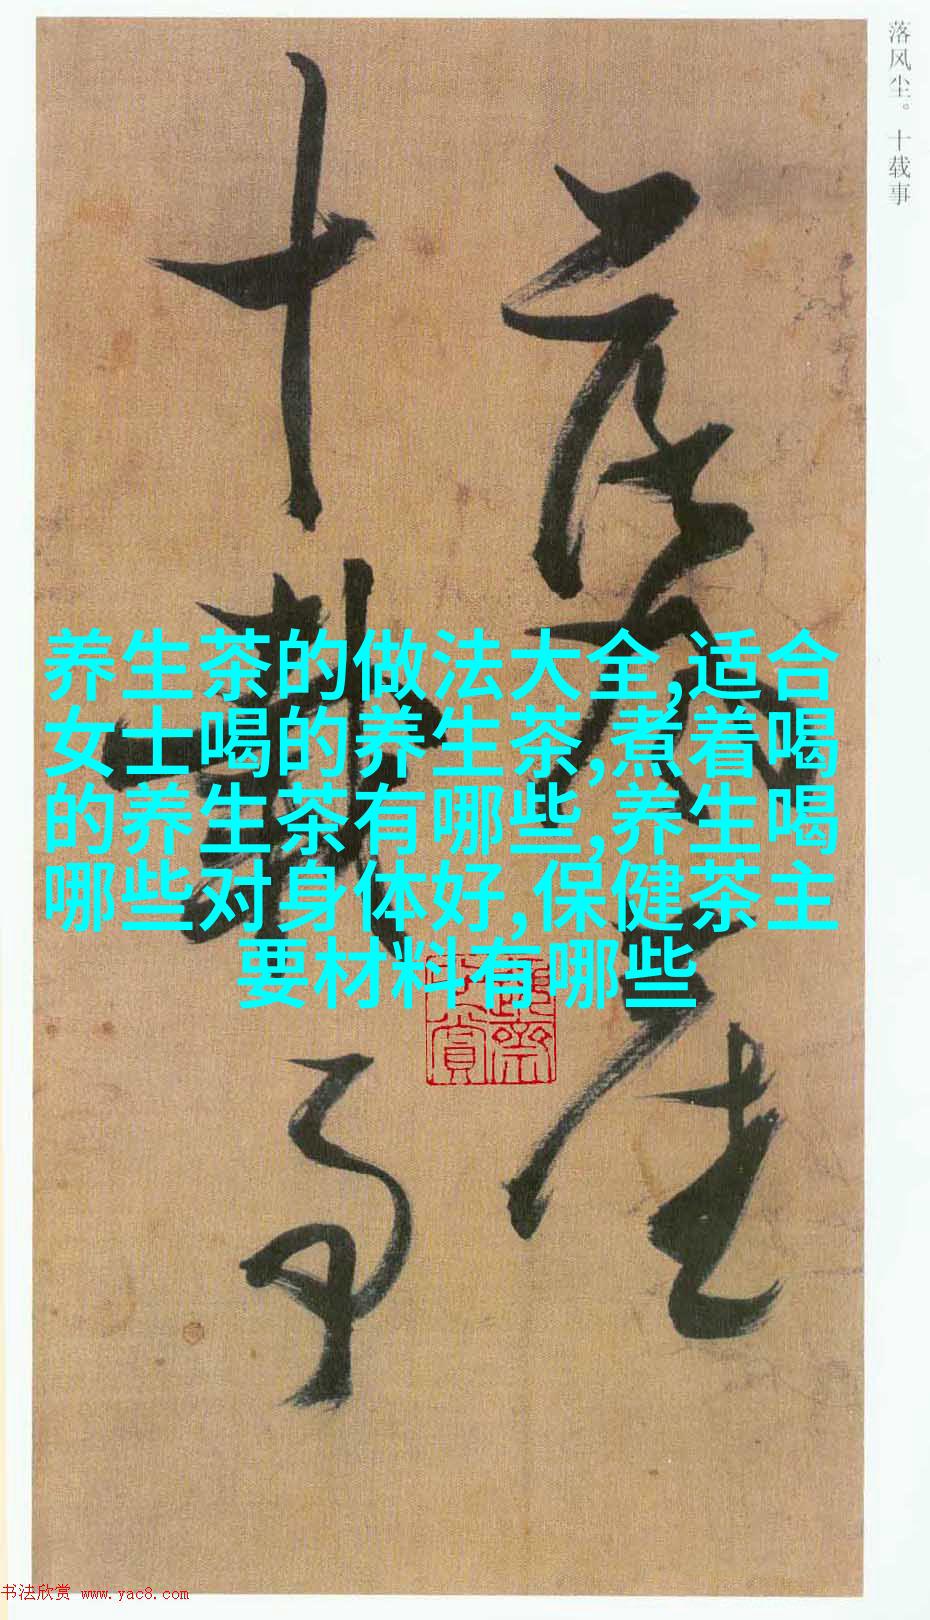 落风尘。十载事
落风尘
十载事
养生茶的做法大全,适合
女士喝的养生茶,煮着喝
的养生茶有哪些,养生喝
哪些对身体好,保健茶主
要材料有哪些
书法欣赏 www.yac8.com